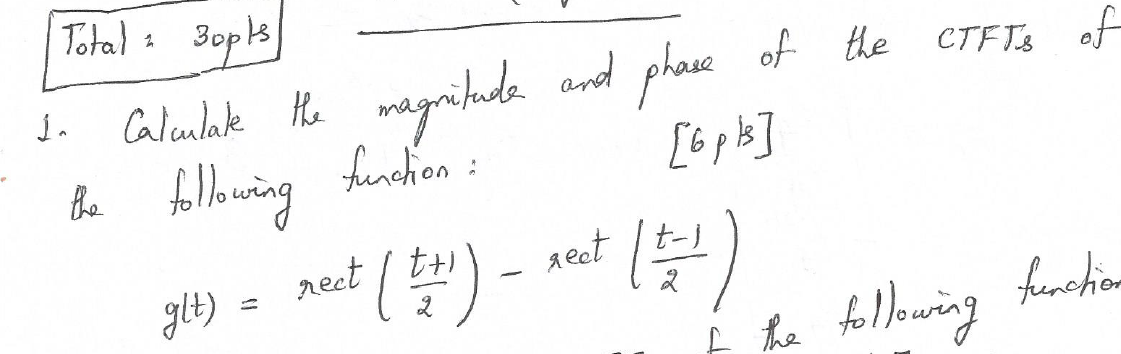 Total : 30pts
1. Calculate the magnitude and phase of the CTFTs of
the following function : [6 pts]
g(t) = rect ( t+1 / 2 ) - rect ( t-1 / 2 )
the following function